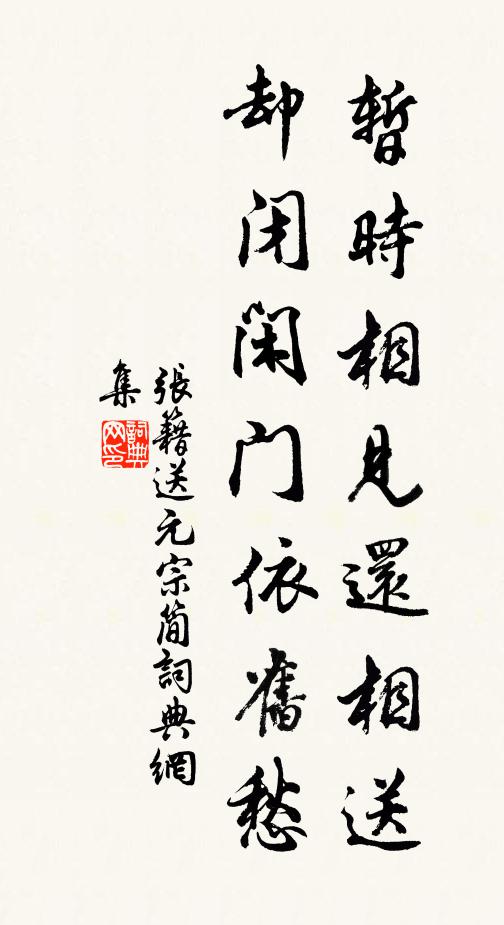 暫時相見還相送
却闭閑门依舊愁
張籍送元宗简詞典網
集
詞典网印